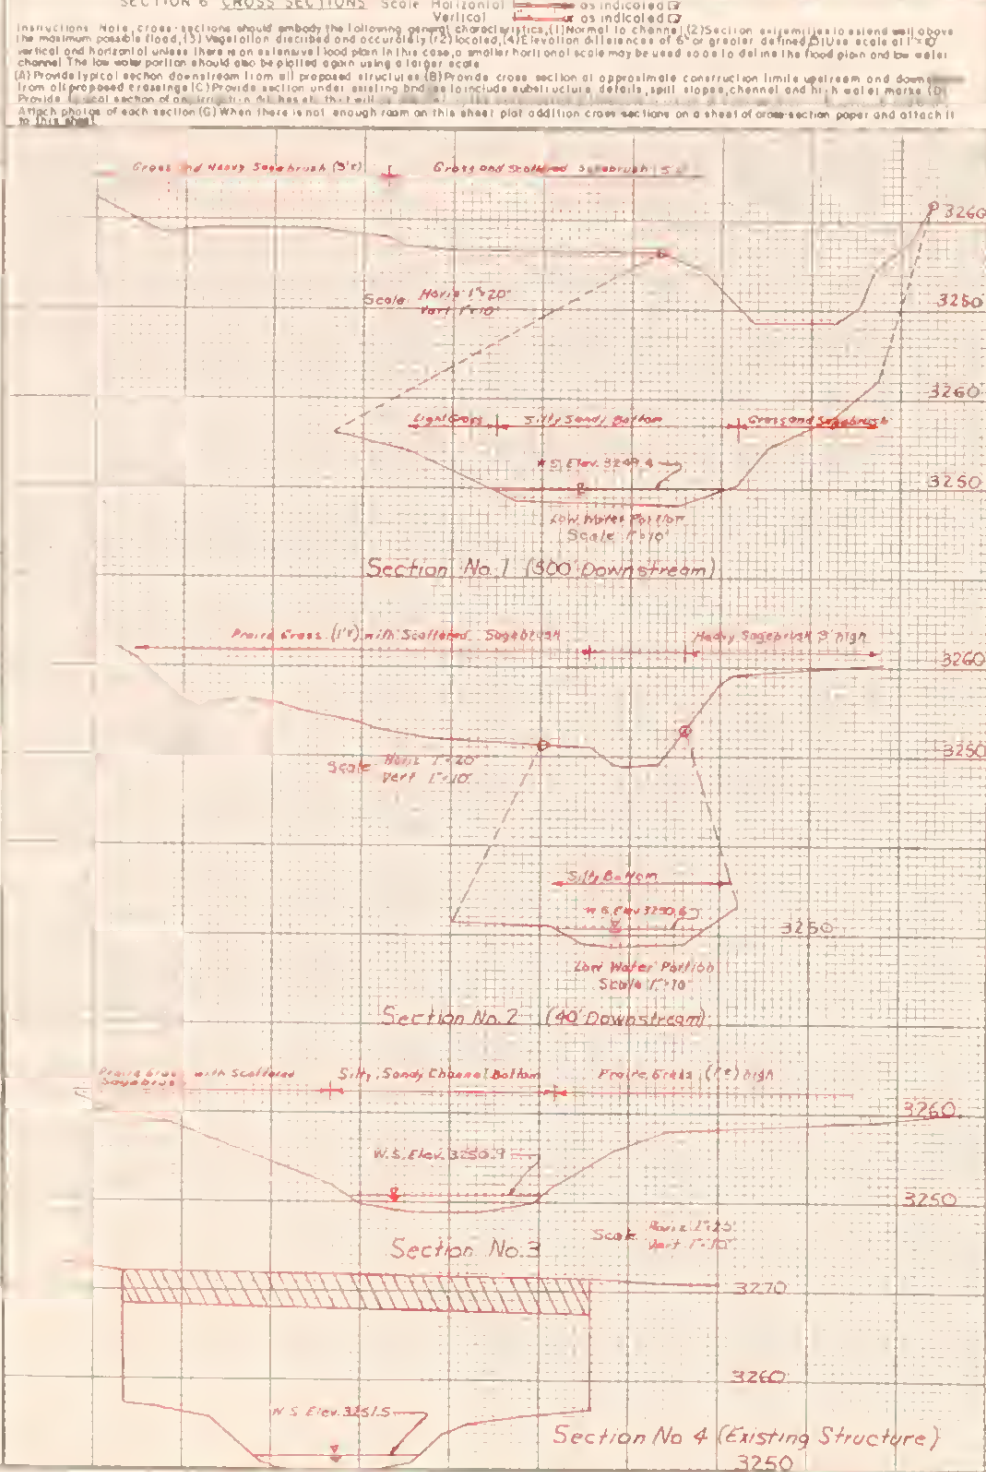 SECTION 6 CROSS SECTIONS Scale Horizontal as indicated
Vertical as indicated
Instructions Note, cross-sections should embody the following general characteristics, (1) Normal to channel, (2) Section extremities to extend well above
the maximum possible flood, (3) Vegetation discribed and accurately located, (4) Elevation differences of 6" or greater defined (5) Use scale of 1"=10'
vertical and horizontal unless there is an extensive flood plain In this case, a smaller horizontal scale may be used so as to define the flood plain and low water
channel The low water portion should also be plotted again using a larger scale
(A) Provide typical section downstream from all proposed structures (B) Provide cross section at approximate construction limits upstream and down
from all proposed crossings (C) Provide section under existing bridges to include substructure details, spill slopes, channel and high water marks (D)
Provide typical section of any irrigation ditches
Attach photos of each section (G) When there is not enough room on this sheet plat addition cross sections on a sheet of cross-section paper and attach it
to this sheet
Grass and Heavy Sagebrush (3'±) Grass and Scattered Sagebrush
3260
Scale Horiz 1"=20'
Vert 1"=10'
3250
3260
Light Grass Silty Sandy Bottom Grass and Sagebrush
W.S. Elev. 3249.4
3250
Low Water Portion
Scale 1"=10'
Section No. 1 (300' Downstream)
Praire Grass (1'±) with Scattered Sagebrush Heavy Sagebrush 3' high
3260
3250
Scale Horiz 1"=20'
Vert 1"=10'
Silty Bottom
W.S. Elev 3250.6
3250
Low Water Portion
Scale 1"=10'
Section No. 2 (40' Downstream)
Praire Grass with Scattered Silty, Sandy Channel Bottom Praire Grass (1'±) high
Sagebrush
3260
W.S. Elev. 3250.9
3250
Scale Horiz 1"=20'
Vert 1"=10'
Section No. 3
3270
3260
W.S. Elev. 3251.5
Section No 4 (Existing Structure)
3250